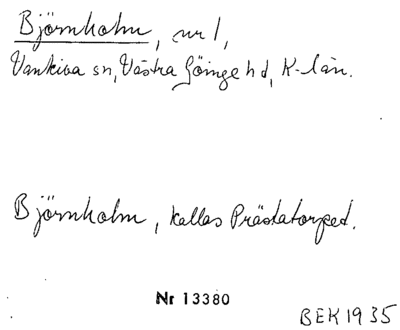 Björnholm, nr 1,
Vankiva sn, Västra Göinge hd, K-län.
Björnholm, kallas Prästatorpet.
Nr 13380
BEK 1935